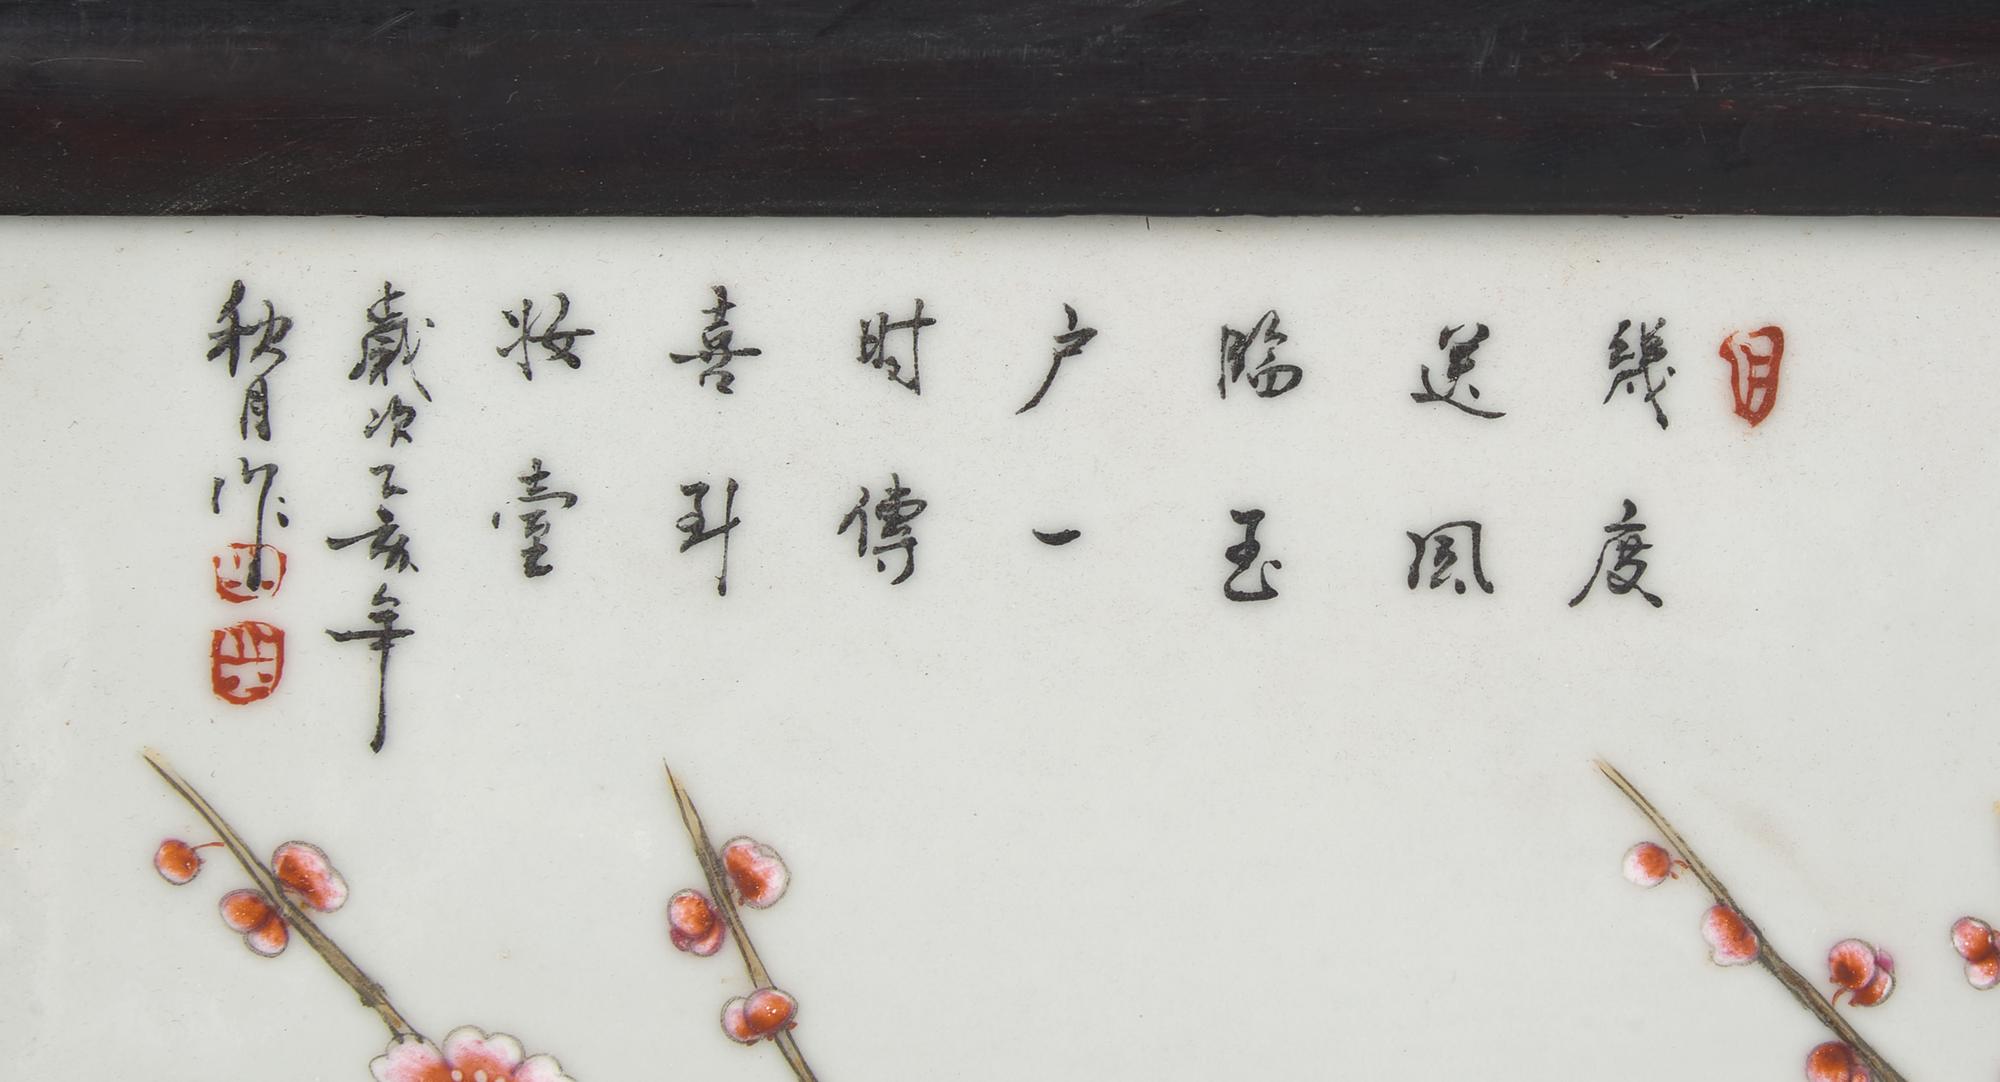 幾度
送風
臨玉
户一
时傳
喜到
妝臺
歲次乙亥年
秋月作